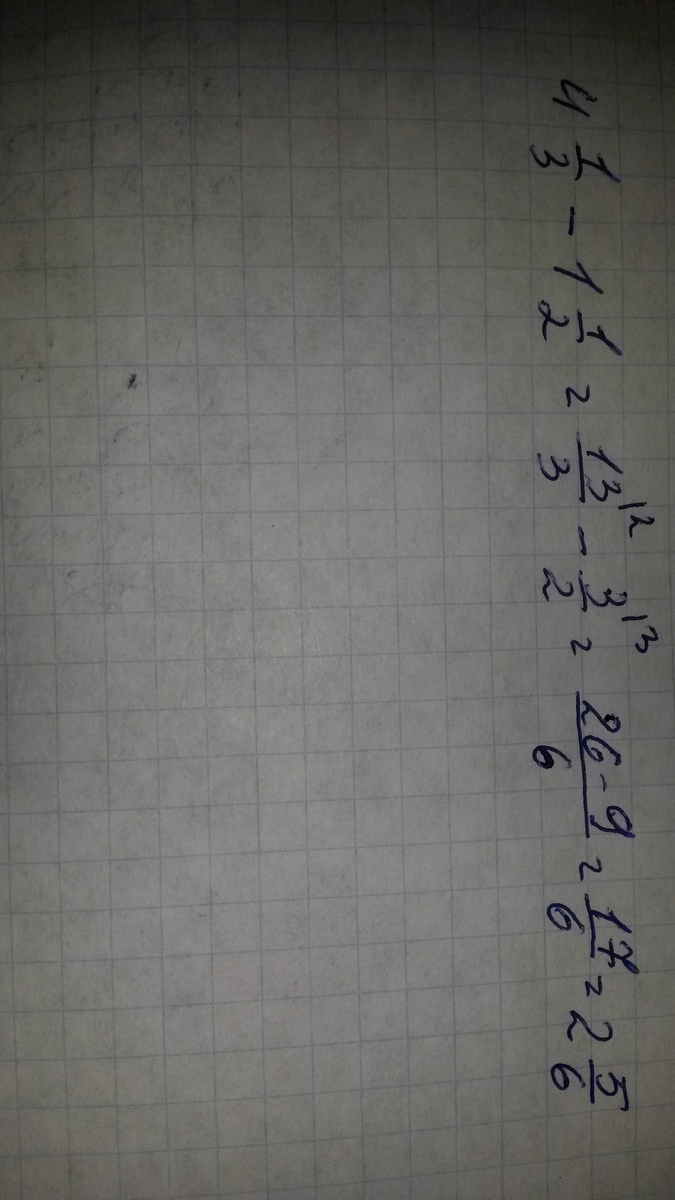 4 1/3 - 1 1/2 = 13/3 |2 - 3/2 |3 = 26-9/6 = 17/6 = 2 5/6